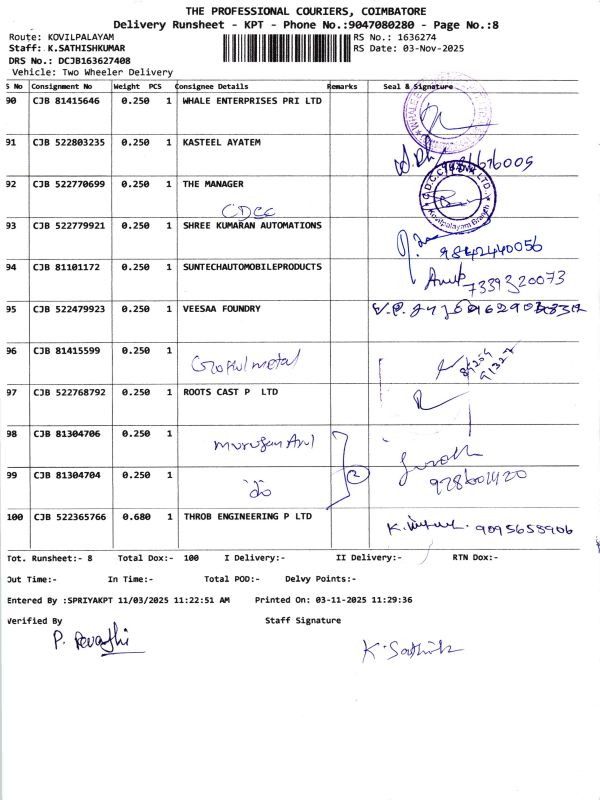 THE PROFESSIONAL COURIERS, COIMBATORE
Delivery Runsheet - KPT - Phone No.:9047080280 - Page No.:8
Route: KOVILPALAYAM RS No.: 1636274
Staff: K.SATHISHKUMAR RS Date: 03-Nov-2025
DRS No.: DCJB163627408
Vehicle: Two Wheeler Delivery
S No Consignment No Weight PCS Consignee Details Remarks Seal & Signature
90 CJB 81415646 0.250 1 WHALE ENTERPRISES PRI LTD
91 CJB 522803235 0.250 1 KASTEEL AYATEM
92 CJB 522770699 0.250 1 THE MANAGER
CDCC
Kovilpalayam Branch
93 CJB 522779921 0.250 1 SHREE KUMARAN AUTOMATIONS
9842440056
94 CJB 81101172 0.250 1 SUNTECHAUTOMOBILEPRODUCTS
7339320073
95 CJB 522479923 0.250 1 VEESAA FOUNDRY
96 CJB 81415599 0.250 1
Gokul metal
97 CJB 522768792 0.250 1 ROOTS CAST P LTD
98 CJB 81304706 0.250 1
Murugan Arul
99 CJB 81304704 0.250 1
do
2
100 CJB 522365766 0.680 1 THROB ENGINEERING P LTD
9095658906
Tot. Runsheet:- 8 Total Dox:- 100 I Delivery:- II Delivery:- RTN Dox:-
Out Time:- In Time:- Total POD:- Delvy Points:-
Entered By :SPRIYAKPT 11/03/2025 11:22:51 AM Printed On: 03-11-2025 11:29:36
Verified By Staff Signature
P. Revathi
K. Sathish